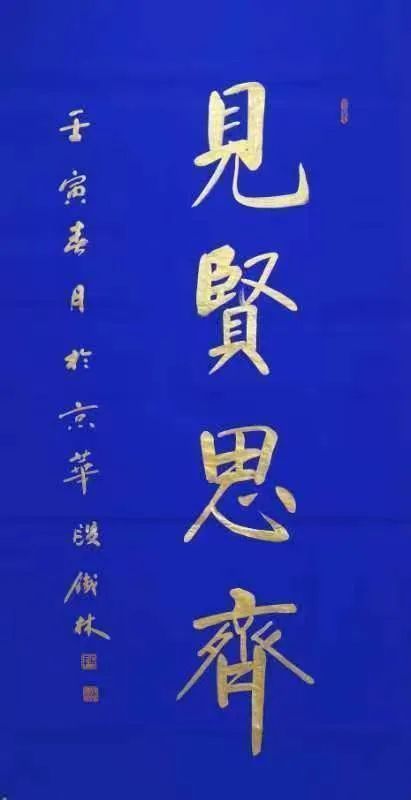 見賢思齊
壬寅春月於京華段鐵林